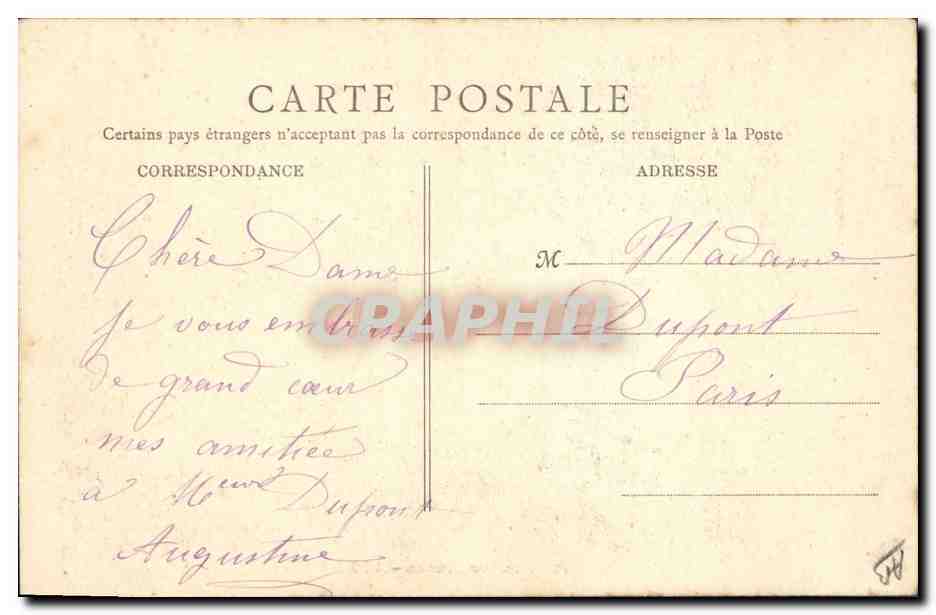 CARTE POSTALE
Certains pays étrangers n'acceptant pas la correspondance de ce côté, se renseigner à la Poste
CORRESPONDANCE
Chère Dame
je vous embrass
de grand cœur
mes amitiée
à Meur Dupont
Augustine
ADRESSE
M Madame
Dupont
Paris
CRAPHII